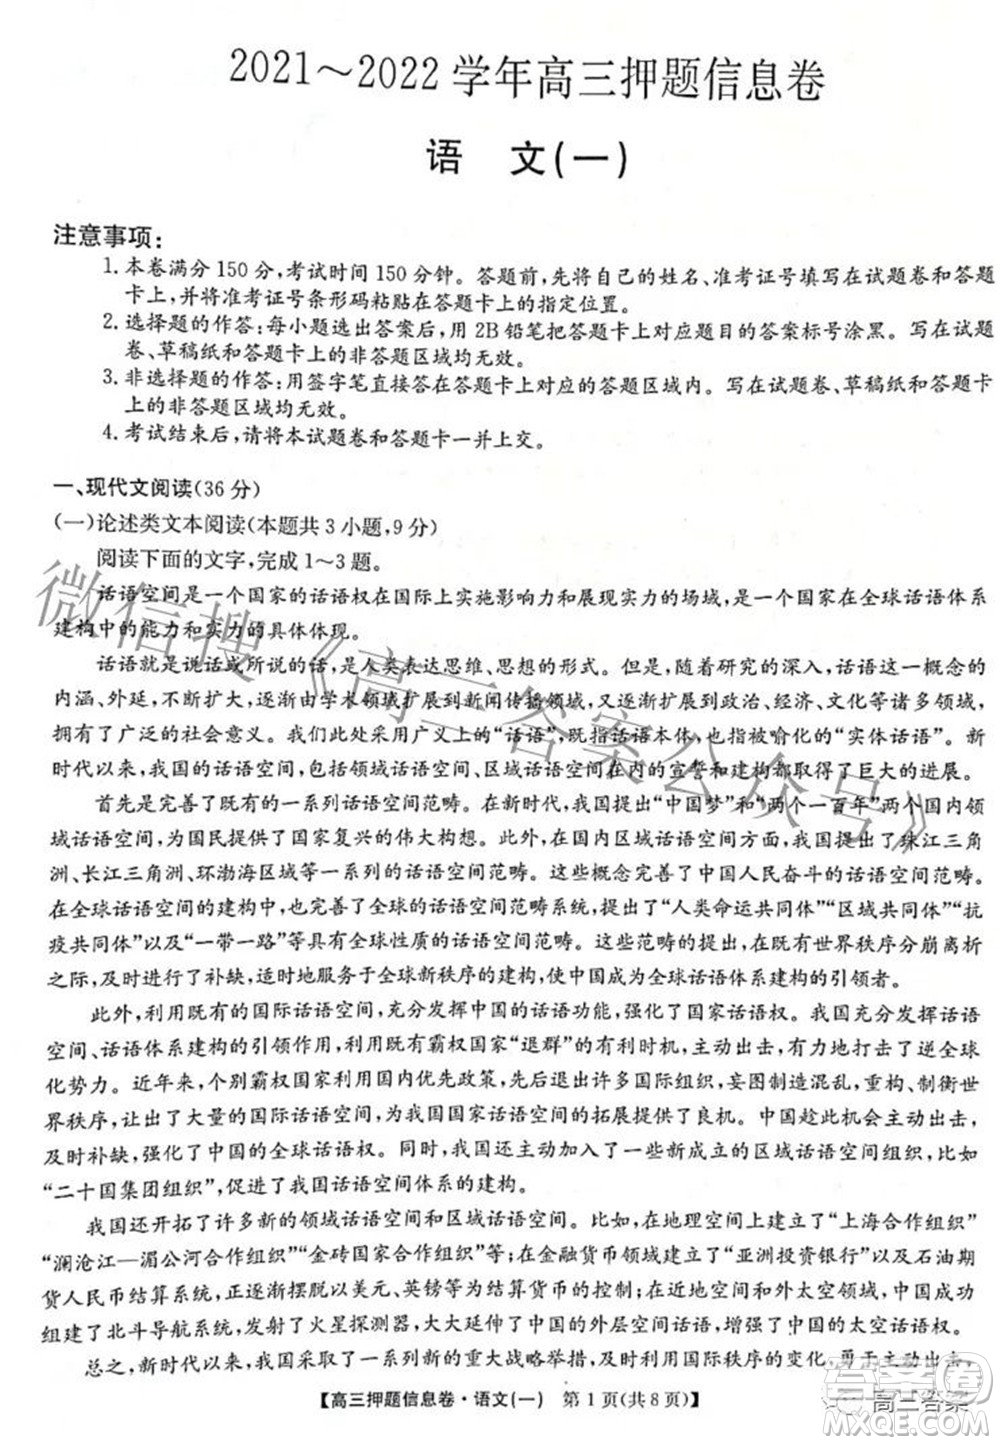 2021～2022学年高三押题信息卷
语 文(一)
注意事项:
1. 本卷满分150分,考试时间150分钟。答题前,先将自己的姓名、准考证号填写在试题卷和答题
卡上,并将准考证号条形码粘贴在答题卡上的指定位置。
2. 选择题的作答:每小题选出答案后,用2B铅笔把答题卡上对应题目的答案标号涂黑。写在试题
卷、草稿纸和答题卡上的非答题区域均无效。
3. 非选择题的作答:用签字笔直接答在答题卡上对应的答题区域内。写在试题卷、草稿纸和答题卡
上的非答题区域均无效。
4. 考试结束后,请将本试题卷和答题卡一并上交。
一、现代文阅读(36分)
(一)论述类文本阅读(本题共3小题,9分)
阅读下面的文字,完成1～3题。
话语空间是一个国家的话语权在国际上实施影响力和展现实力的场域,是一个国家在全球话语体系
建构中的能力和实力的具体体现。
话语就是说话或所说的话,是人类表达思维、思想的形式。然而,随着研究的深入,话语这一概念的
内涵、外延,不断扩大,逐渐由学术领域扩展到新闻传播领域,又逐渐扩展到政治、经济、文化等诸多领域,
拥有了广泛的社会意义。我们此处采用广义上的“话语”,既指话语本体,也指被喻化的“实体话语”。新
时代以来,我国的话语空间,包括领域话语空间、区域话语空间在内的宣誓和建构都取得了巨大的进展。
首先是完善了既有的一系列话语空间范畴。在新时代,我国提出“中国梦”和“两个一百年”两个国内领
域话语空间,为中国人民提供了国家复兴的伟大构想。此外,在国内区域话语空间中,提出了珠江三角
洲、长江三角洲、环渤海区域等一系列的话语空间范畴,完善了中国人民奋斗的话语空间范畴。
在全球话语空间的建构中,也完善了全球的话语空间范畴系统,提出了“人类命运共同体”“区域共同体”“抗
疫共同体”以及“一带一路”等具有全球性质的话语空间范畴。这些范畴的提出,在既有世界秩序分崩离析
之际,及时进行了补缺,适时地服务于全球新秩序的建构,使中国成为全球话语体系建构的引领者。
此外,利用既有的国际话语空间,充分发挥中国的话语功能,强化了国家话语权。我国充分发挥话语
空间、话语体系建构的引领作用,利用既有霸权国家“退群”的有利时机,主动出击,有力地打击了逆全球
化势力。近年来,个别霸权国家利用国内优先政策,退出许多国际组织,妄图制造混乱,重构、制衡世
界秩序,让出了大量的国际话语空间,为我国国家话语空间的拓展提供了良机。中国趁此机会主动出击,
及时补缺,强化了中国的全球话语权。同时,我国还主动加入、建构、完善和强化了一些区域话语空间,比如
“二十国集团组织”,促进了我国话语空间体系的建构。
我国还开拓了许多新的领域话语空间和区域话语空间。比如,在地理空间上建立了“上海合作组织”
“澜沧江—湄公河合作组织”“金砖国家合作组织”等;在金融货币领域建立了“亚洲投资银行”以及石油期
货人民币结算系统,逐渐摆脱了以美元、英镑等为结算货币的控制;在近地空间和外太空领域,成功
组建了北斗导航系统,发射了火星探测器,大大扩展了中国的外层空间话语,增强了中国的太空话语权。
总之,新时代以来,我国采取了一系列新的重大战略举措,及时利用国际秩序的变化,勇于主动出击,
【高三押题信息卷·语文(一) 第1页(共8页)】
微信搜《高三答案公众号》
高三答案
MXQE.COM